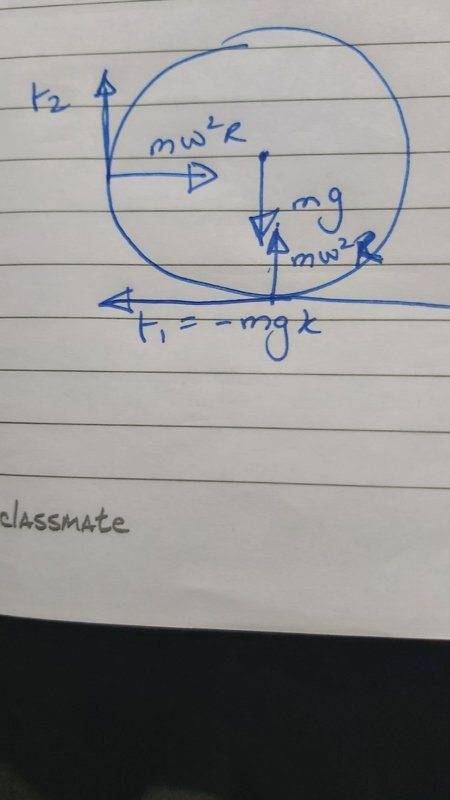 t2
mω²R
mg
mω²R
t₁ = -mgk
classmate